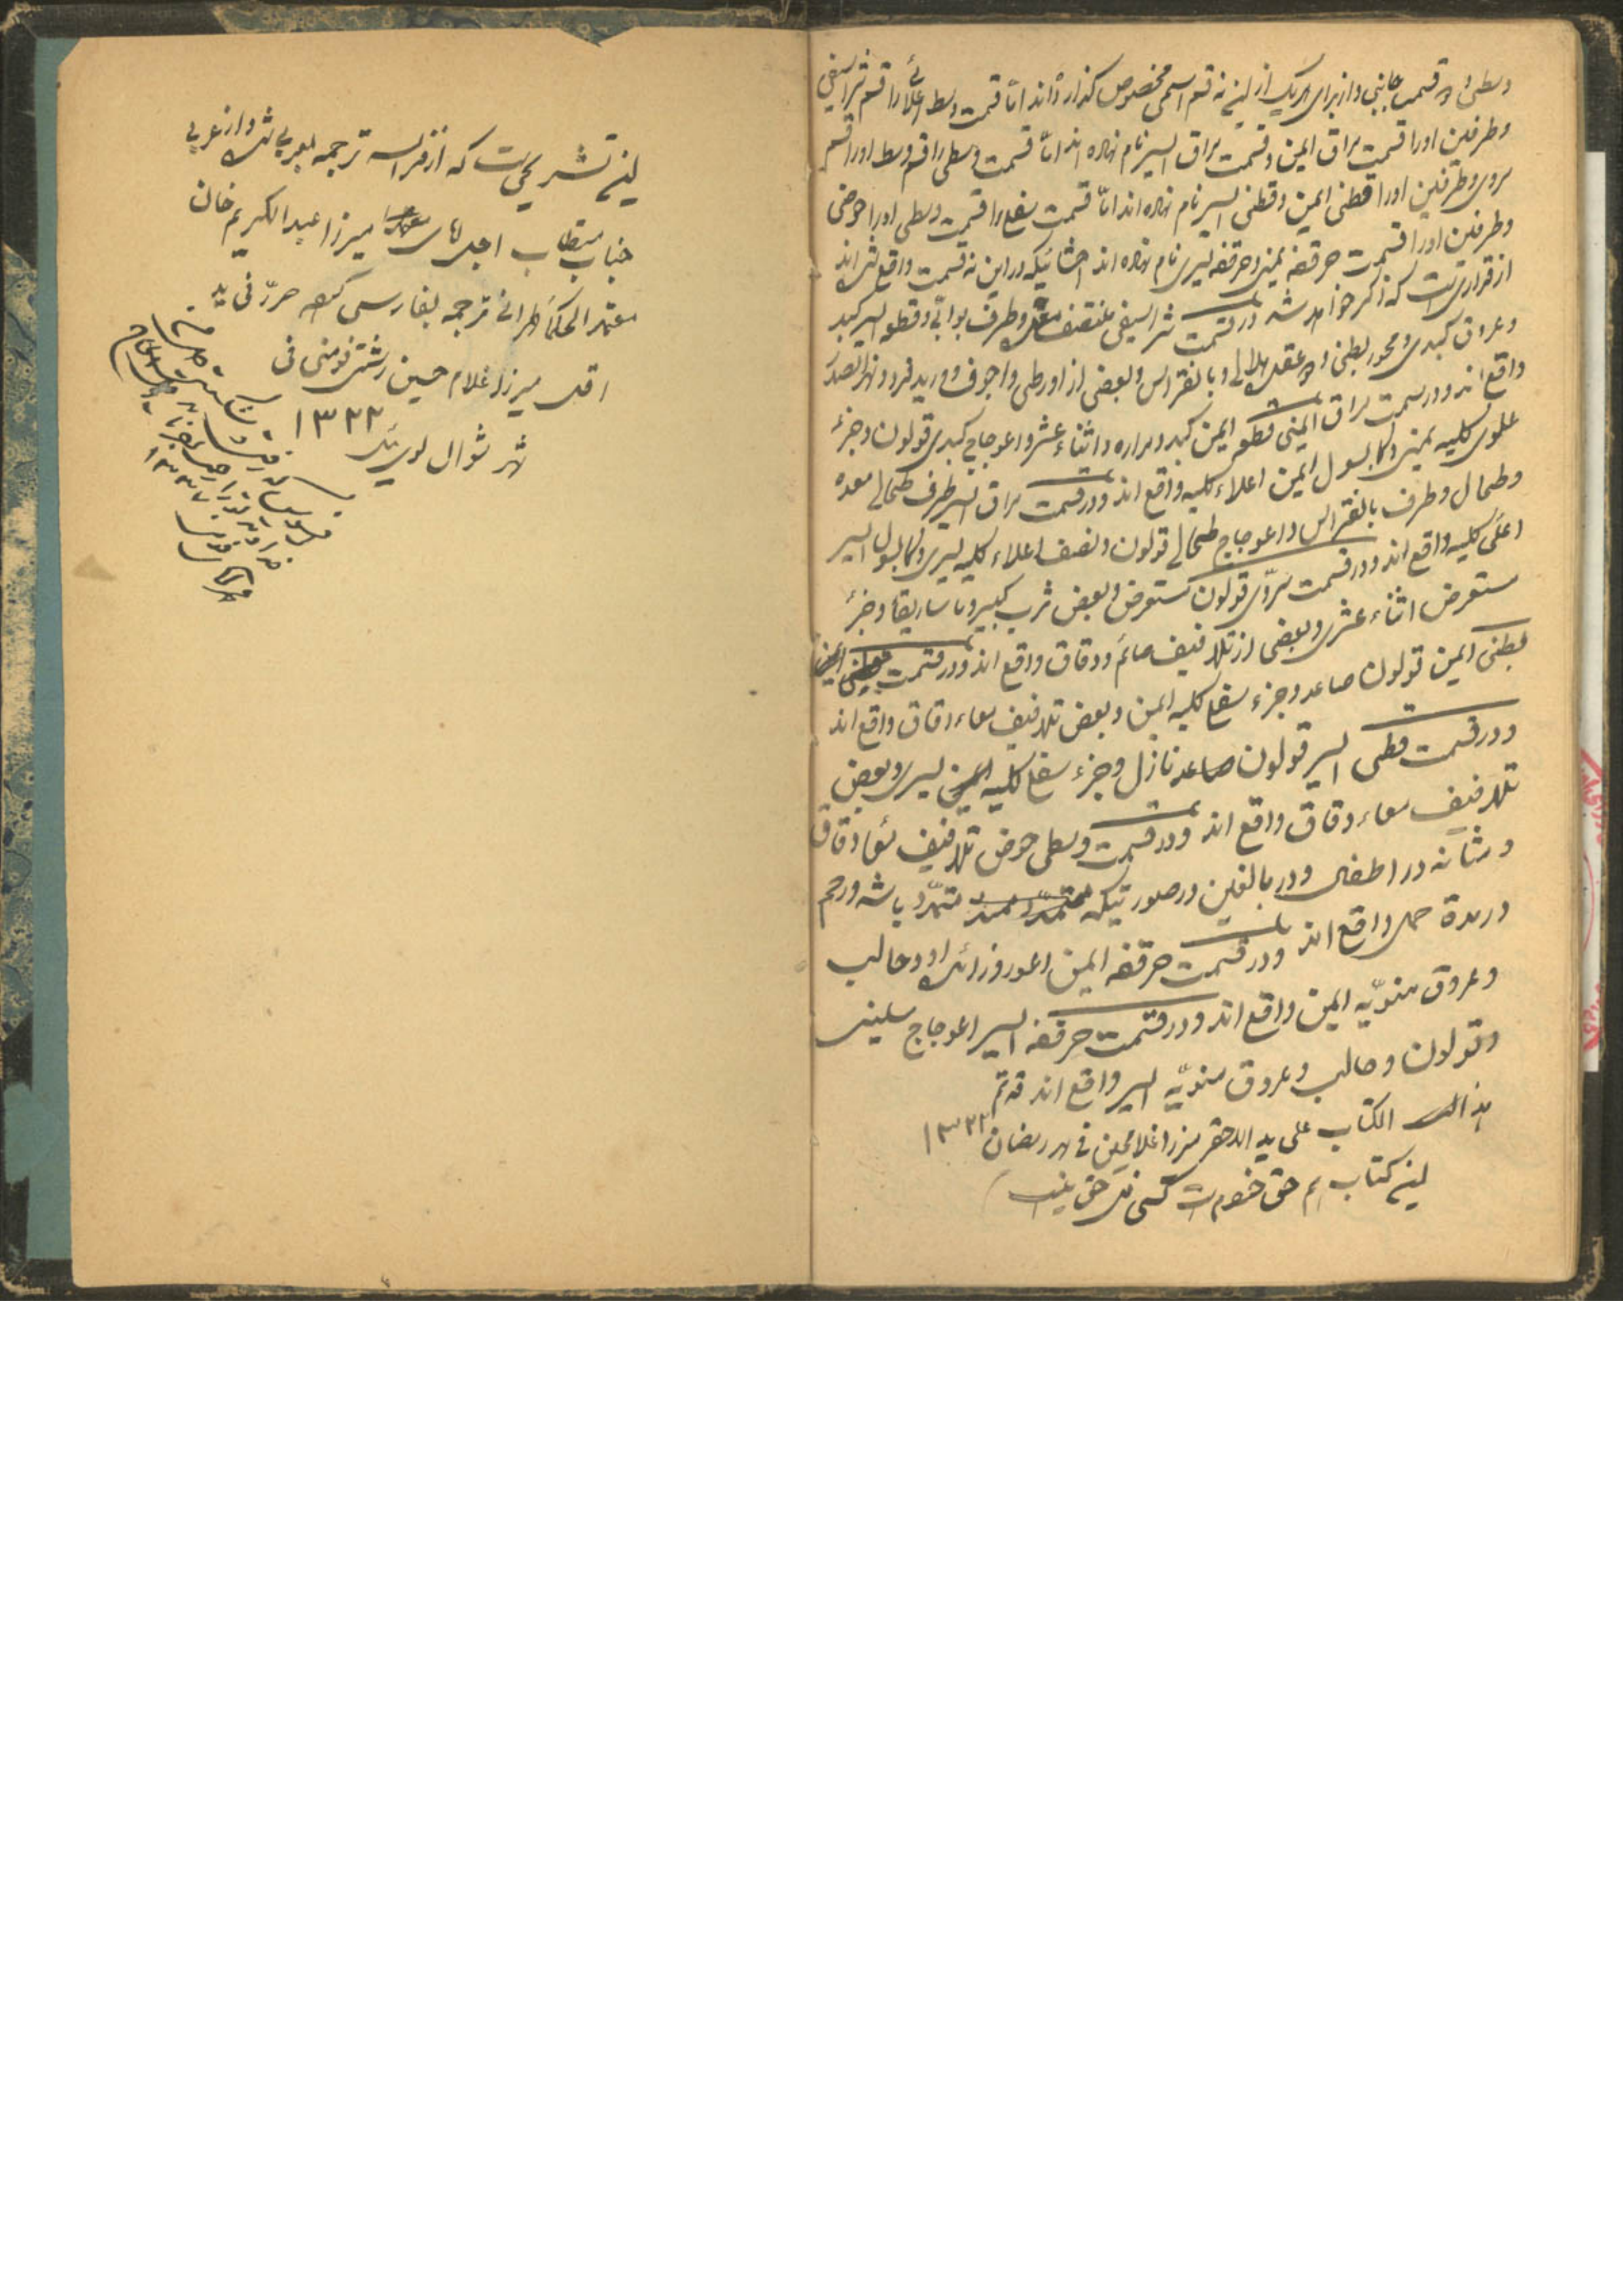 وسطی و دو قسمت جانبی و از برای هر یک از این نه قسم اسمی مخصوص گذارده‌اند امّا قسمت وسط اعلا را قسم شراسیفی
وطرفین اورا قسمت مراق ایمن و قسمت مراق ایسر نام نهاده اند امّا قسمت وسطی را قسم وسط اورا قسم
سروی وطرفین اورا قطنی ایمن و قطنی ایسر نام نهاده اند امّا قسمت سفلی را قسمت وسطی اورا حوضی
وطرفین اورا قسمت حرقفه یمنی و حرقفه یسری نام نهاده اند احشائیکه در این نه قسمت واقع شده اند
از قراریست که ذکر خواهد شد در قسمت شراسیفی منتصف معده وطرف بوابی و قطعه ایسر کبد
وعروق کبدی و محور بطنی و عقد هلالی و بانقراس و بعضی از اورطی و اجوف و ورید فرد و نهر الصدر
واقع اند و در سمت مراق ایمنی قطعه ایمن کبد و مراره و اثناء عشر و اعوجاج کبدی قولون و جزء
علوی کلیه یمنی و کلا بسول ایمن اعلاء کلیه واقع اند و در قسمت مراق ایسر طرف طحالی معده
وطحال وطرف بانقراس و اعوجاج طحالی قولون و نصف اعلاء کلیه یسری و کلا بسول ایسر
اعلی کلیه واقع اند و در قسمت سرّی قولون مستعرض و بعض ثرب کبیر و ماساریقا و جزء
مستعرض اثناء عشری و بعضی از تلافیف صائم و دقاق واقع اند و در قسمت
قطنی ایمن قولون صاعد و جزء سفلی کلیه ایمن و بعض تلافیف معاء دقاق واقع اند
و در قسمت قطنی ایسر قولون صاعد نازل و جزء سفلی کلیه ایمن یسری و بعض
تلافیف معاء دقاق واقع اند و در قسمت وسطی حوض تلافیف معاء دقاق
و مثانه در اطفال و در بالغین در صورتیکه متمدّد باشد و رحم
در مدة حمل واقع اند و در قسمت حرقفه ایمن اعور و زائده او و حالب
و عروق منویّه ایمن واقع اند و در قسمت حرقفه ایسر اعوجاج سینی
و قولون و حالب و عروق منویّه ایسر واقع اند قد تم
هذا الکتاب علی ید الاحقر میرزا غلامحسین فی شهر رمضان ۱۳۲۲
این کتاب هم حق خودم است کسی را حق نیست
این تشریحی است که از فرانسه ترجمه بعربی شده و از عربی
جناب مستطاب اجل آقای میرزا عبدالکریم خان
معتمد الحکماء طهرانی ترجمه بفارسی کرده حرّر فی ید
اقل میرزا غلام حسین رشتی فومنی فی
شهر شوال لوی ئیل ۱۳۲۲